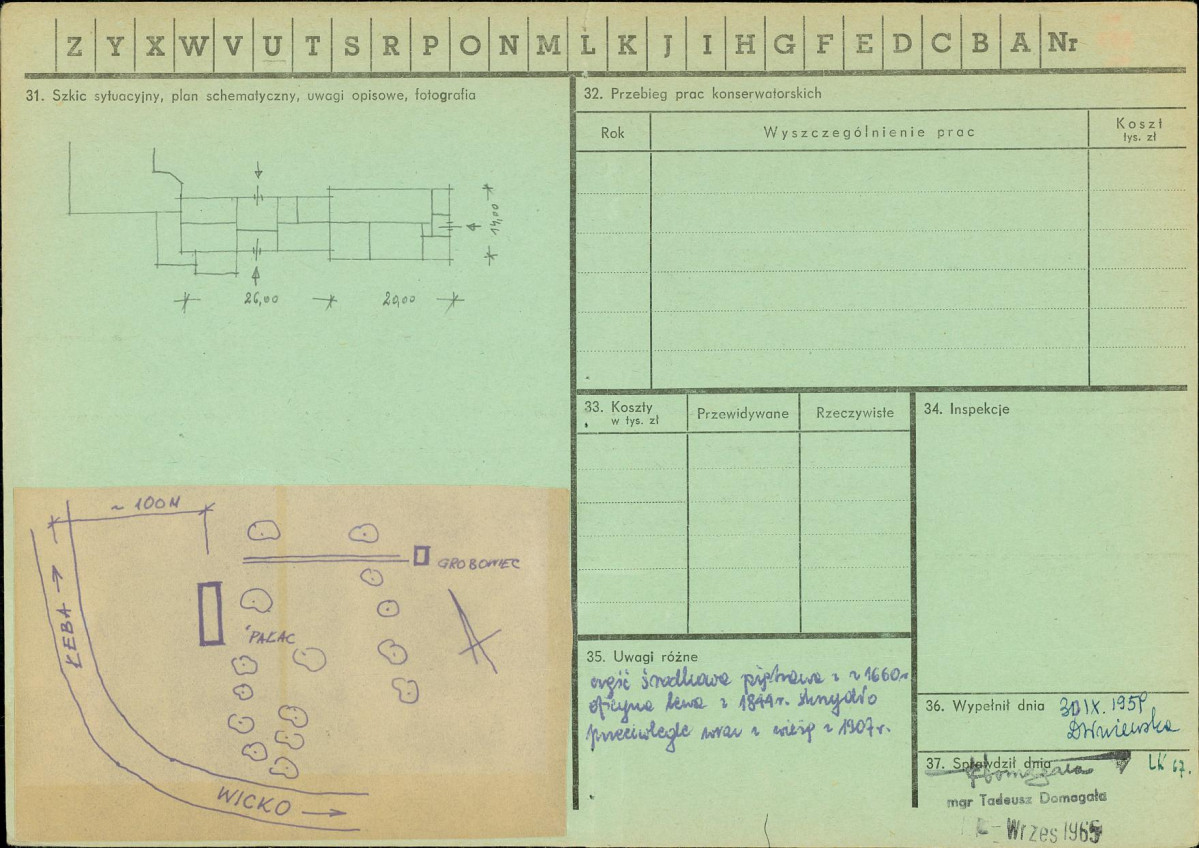 Z Y X W V U T S R P O N M L K J I H G F E D C B A Nr
31. Szkic sytuacyjny, plan schematyczny, uwagi opisowe, fotografia
14,00
26,00
20,00
~ 100M
GROBOWIEC
ŁEBA →
PAŁAC
WICKO →
32. Przebieg prac konserwatorskich
Rok
Wyszczególnienie prac
Koszt
tys. zł
33. Koszty
w tys. zł
Przewidywane
Rzeczywiste
34. Inspekcje
35. Uwagi różne
część środkowa piętrowa z ~ 1660r
oficyna lewa z 1844r. skrzydło
przeciwległe wraz z wieżą z 1907r.
36. Wypełnił dnia
30 IX. 1959
37. Sprawdził dnia
Domagała
LK 67.
mgr Tadeusz Domagała
Wrzes 1965